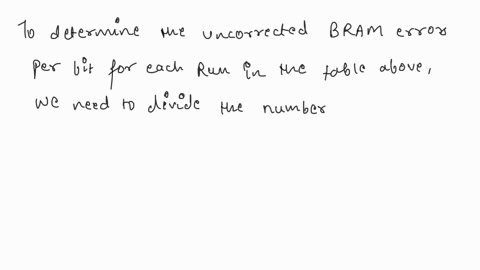 To determine the uncorrected BRAM errors
per bit for each Run in the table above,
we need to divide the number